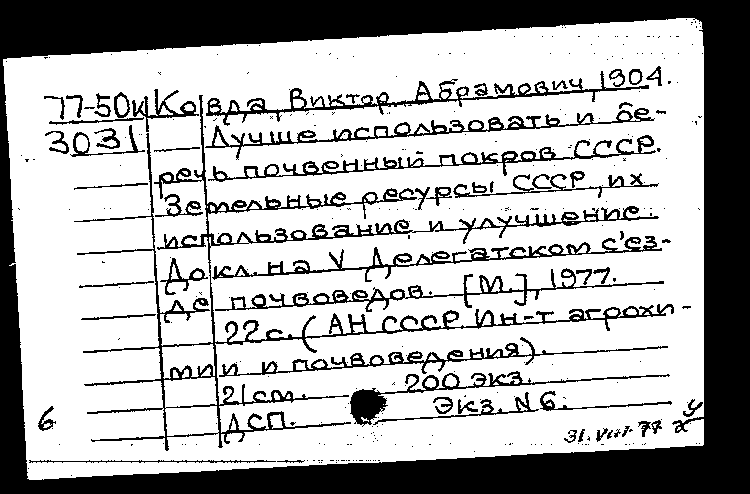 77-50к Ковда, Виктор Абрамович, 1904.
3031 Лучше использовать и бе-
речь почвенный покров СССР.
Зетельные ресурсы СССР, их
использование и улучшение.
Докл. на V Делегатском с'ез-
де почвоведов. [М.], 1977.
22с. (АН СССР. Ин-т агрохи-
мии и почвоведения).
21 см. 200 экз.
6 ДСП. Экз. N 6.
31.VIII 77